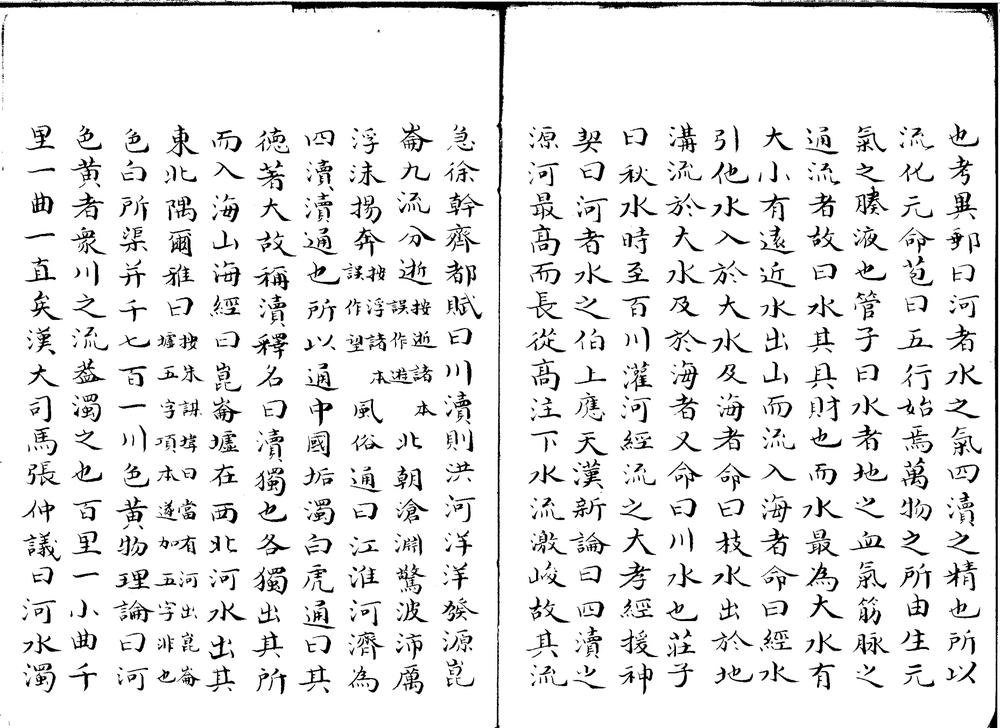 也考異郵曰河者水之氣四瀆之精也所以
流化元命苞曰五行始焉萬物之所由生元
氣之腠液也管子曰水者地之血氣筋脉之
通流者故曰水其具財也而水最為大水有
大小有遠近水出山而流入海者命曰經水
引他水入於大水及海者命曰枝水出於地
溝流於大水及於海者又命曰川水也莊子
曰秋水時至百川灌河經流之大孝經援神
契曰河者水之伯上應天漢新論曰四瀆之
源河最高而長從高注下水流激峻故其流
急徐幹齊都賦曰川瀆則洪河洋洋發源崑
崙九流分逝按逝諸本誤作遊北朝滄淵驚波沛厲
浮沫揚奔按浮諸本誤作望風俗通曰江淮河濟為
四瀆瀆通也所以通中國垢濁白虎通曰其
德著大故稱瀆釋名曰瀆獨也各獨出其所
而入海山海經曰崑崙墟在西北河水出其
東北隅爾雅曰按朱謀㙔曰當有河出崑崙墟五字項本遂加五字非也
色白所渠并千七百一川色黄物理論曰河
色黄者衆川之流葢濁之也百里一小曲千
里一曲一直矣漢大司馬張仲議曰河水濁